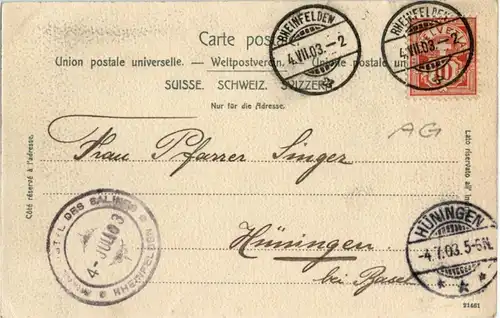 Carte postale
Union postale universelle. — Weltpostverein. — Unione postale
SUISSE. SCHWEIZ. SVIZZERA
Nur für die Adresse.
RHEINFELDEN
4.VII.03.–2
RHEINFELDEN
4.VII.03.–2
10
AG
Côté réservé à l'adresse.
Lato riservato all'
Frau Pfarrer Singer
Hüningen
bei Basel
DES SALINES
4-JUIL 03
HÜNINGEN
-4.7.03.5-6N.
21461